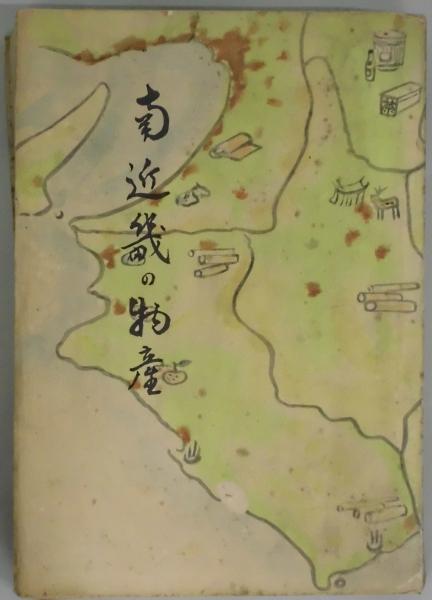 南近畿の物産